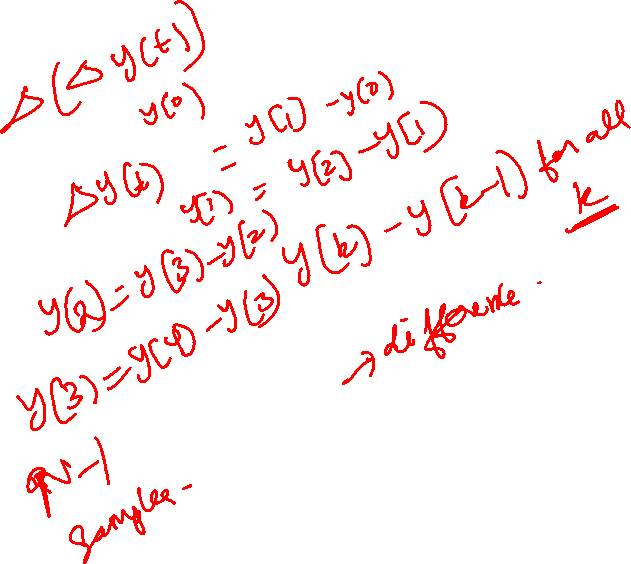 Δ(Δy(t))
y(0) = y[1) - y(0)
Δy(t) y[1) = y[2) - y[1)
y(2) = y(3) - y(2) y(k) - y(k-1) for all k
y(3) = y(4) - y(3) → difference.
N-1
samples.